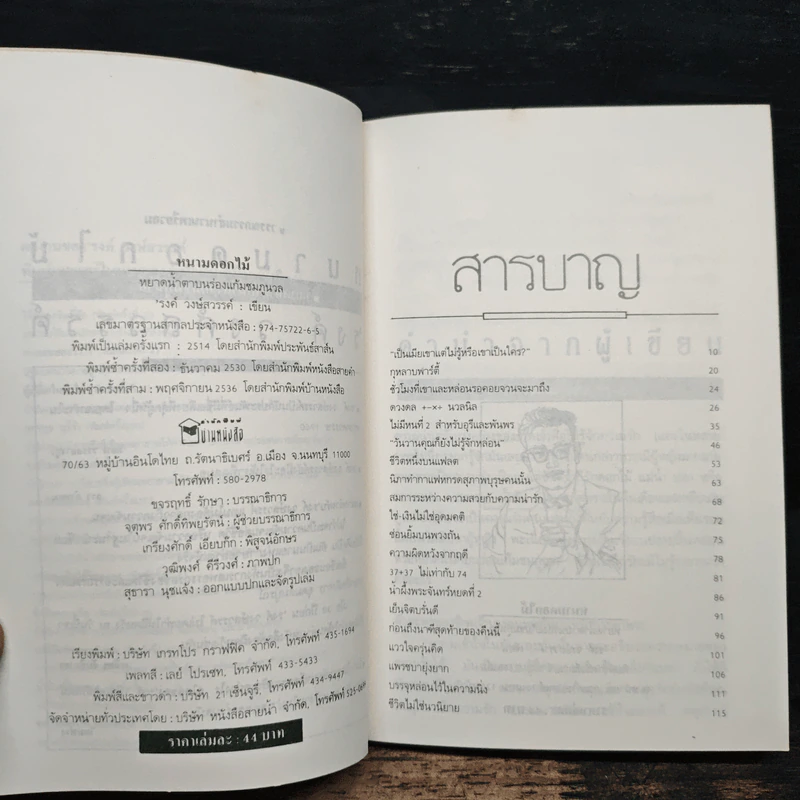 หนามดอกไม้
หยาดน้ำตาบนร่องแก้มชมภูนวล
'รงค์ วงษ์สวรรค์ : เขียน
เลขมาตรฐานสากลประจำหนังสือ : 974-75722-6-5
พิมพ์เป็นเล่มครั้งแรก : 2514 โดยสำนักพิมพ์ประพันธ์สาส์น
พิมพ์ซ้ำครั้งที่สอง : ธันวาคม 2530 โดยสำนักพิมพ์หนังสือสายคำ
พิมพ์ซ้ำครั้งที่สาม : พฤศจิกายน 2536 โดยสำนักพิมพ์บ้านหนังสือ
สำนักพิมพ์
บ้านหนังสือ
70/63 หมู่บ้านอินโดไทย ถ.รัตนาธิเบศร์ อ.เมือง จ.นนทบุรี 11000
โทรศัพท์ : 580-2978
ขจรฤทธิ์ รักษา : บรรณาธิการ
จตุพร ศักดิ์ทิพยรัตน์ : ผู้ช่วยบรรณาธิการ
เกรียงศักดิ์ เอียบก๊ก : พิสูจน์อักษร
วุฒิพงศ์ คีรีวงศ์ : ภาพปก
สุธารา นุชแจ้ง : ออกแบบปกและจัดรูปเล่ม
เรียงพิมพ์ : บริษัท เกรทโปร กราฟฟิค จำกัด, โทรศัพท์ 435-1694
เพลทสี : เลย์ โปรเซท, โทรศัพท์ 433-5433
พิมพ์สีและขาวดำ : บริษัท 21 เซ็นจูรี่, โทรศัพท์ 434-9447
จัดจำหน่ายทั่วประเทศโดย : บริษัท หนังสือสายน้ำ จำกัด, โทรศัพท์
ราคาเล่มละ : 44 บาท
สารบาญ
"เป็นเมียเขาแต่ไม่รู้หรือเขาเป็นใคร?" 10
กุหลาบพาร์ตี้ 20
ชั่วโมงที่เขาและหล่อนรอคอยจวนจะมาถึง 24
ดวงตลก +-×÷ นวลนิล 26
ไม่มีหนที่ 2 สำหรับอุรีและพันพร 35
"วันวานคุณก็ยังไม่รู้จักหล่อน" 46
ชีวิตหนึ่งบนแฟลต 53
นิภาทำกาแฟหกรดสุภาพบุรุษคนนั้น 63
สมการระหว่างความสวยกับความน่ารัก 68
ใช่-เงินไม่ใช่อุดมคติ 72
ซ่อนยิ้มบนพวงถัน 75
ความผิดหวังจากฤดี 78
37+37 ไม่เท่ากับ 74 81
น้ำผึ้งพระจันทร์หยดที่ 2 86
เย็นจิตบรันดี 91
ก่อนถึงนาทีสุดท้ายของคืนนี้ 96
แววใจครุ่นคิด 101
แพรชบายุ่งยาก 106
บรรจุหล่อนไว้ในความนิ่ง 111
ชีวิตไม่ใช่นวนิยาย 115